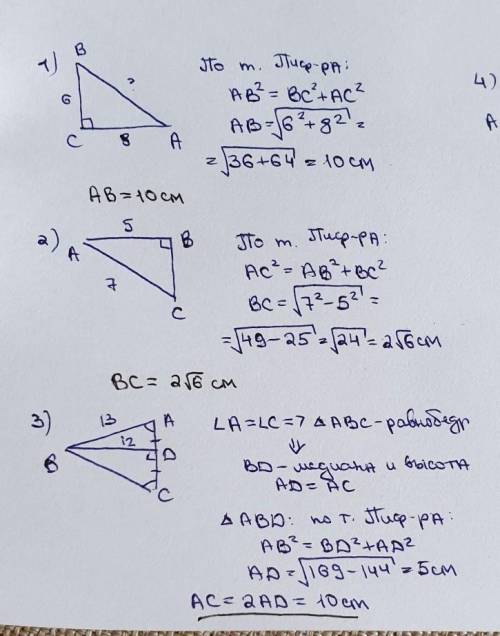 1)
B
6
?
C
8
A
По т. Пиф-рА:
AB² = BC² + AC²
AB = √6² + 8² =
= √36 + 64 = 10 см
AB = 10 см
4)
A
2)
5
A
B
7
C
По т. Пиф-рА:
AC² = AB² + BC²
BC = √7² - 5² =
= √49 - 25 = √24 = 2√6 см
BC = 2√6 см
3)
13
A
12
B
D
C
∠A = ∠C => △ABC - равнобедр
⇓
BD - медиана и высота
AD = AC
△ABD: по т. Пиф-рА:
AB² = BD² + AD²
AD = √169 - 144 = 5 см
AC = 2AD = 10 см